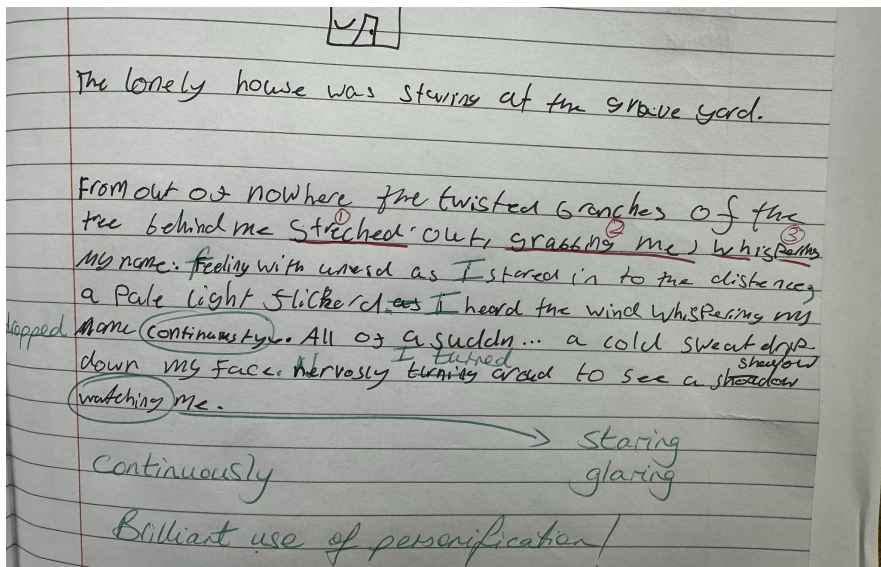 The lonely house was staring at the grave yard.
From out of nowhere the twisted branches of the
tree behind me streched out, grabbing me, whispering
1 2 3
my name. feeling with unesd as I stared in to the distence,
a Pale light flickerd as I heard the wind whispering my
dropped name continuesty. All of a suddn... a cold sweat drip
down my face. Nervosly turning aroud to see a sheadow
I turned
watching me.
staring
Continuously glaring
Brilliant use of personification!